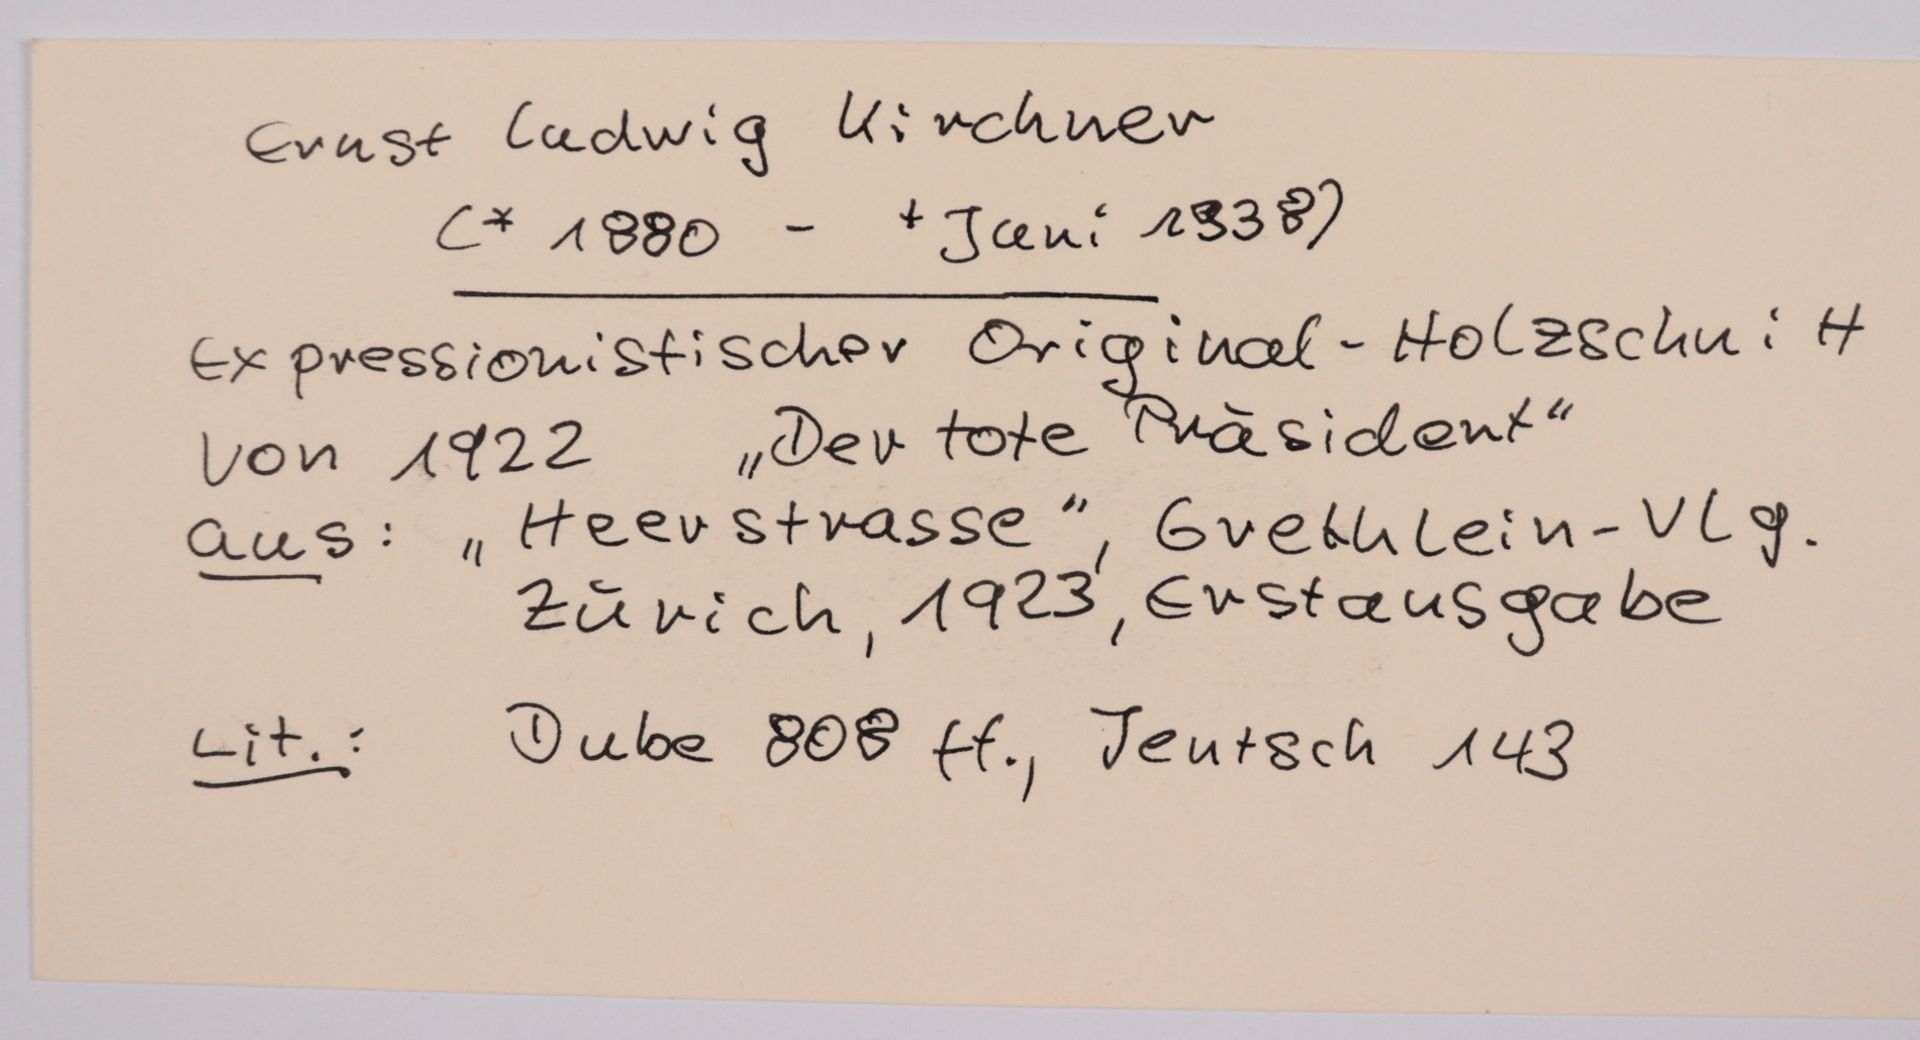 Ernst Ludwig Kirchner
(* 1880 - + Juni 1938)
Expressionistischer Original-Holzschnitt
von 1922 „Der tote Präsident“
aus: „Heerstrasse“, Grethlein-Vlg.
Zürich, 1923, Erstausgabe
Lit.: Dube 808 ff., Jentsch 143